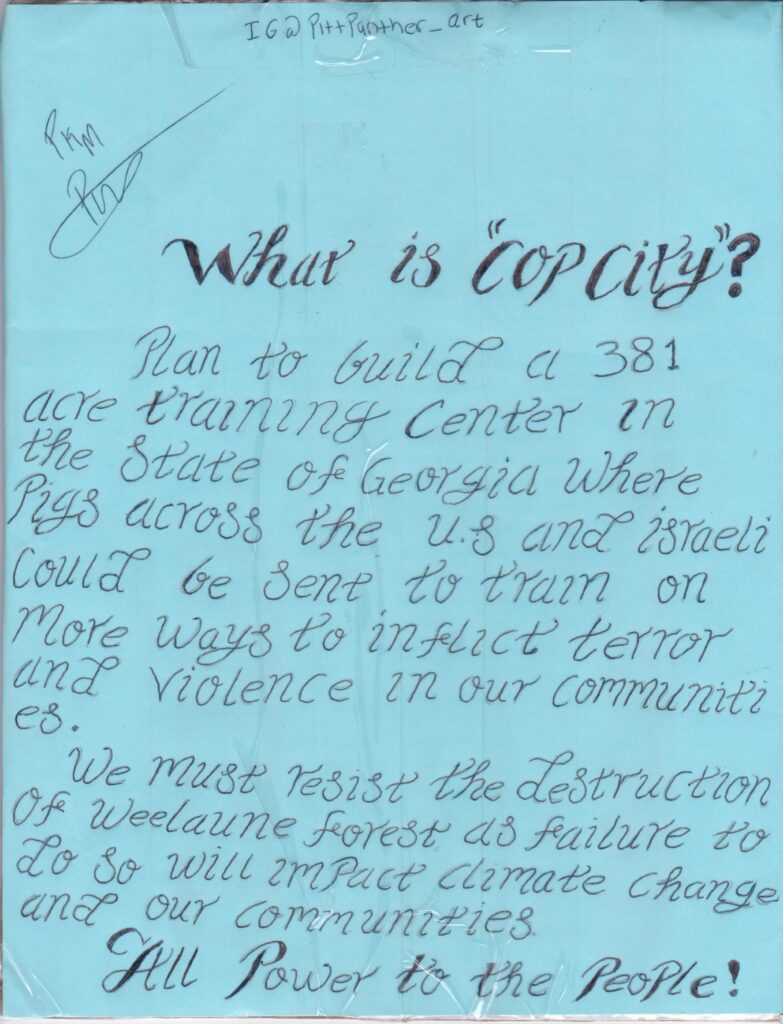 IG@PittPanther_art
PKM
What is "COP City"?
Plan to build a 381
acre training Center in
the State of Georgia Where
Pigs across the U.S and israeli
Could be sent to train on
More Ways to inflict terror
and violence in our communiti
es.
We must resist the destruction
Of Weelaune forest as failure to
do so will impact climate change
and our communities.
All Power to the People!